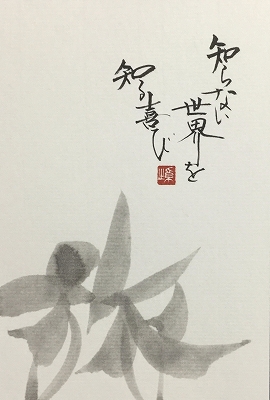 知らない
世界を
知る喜び